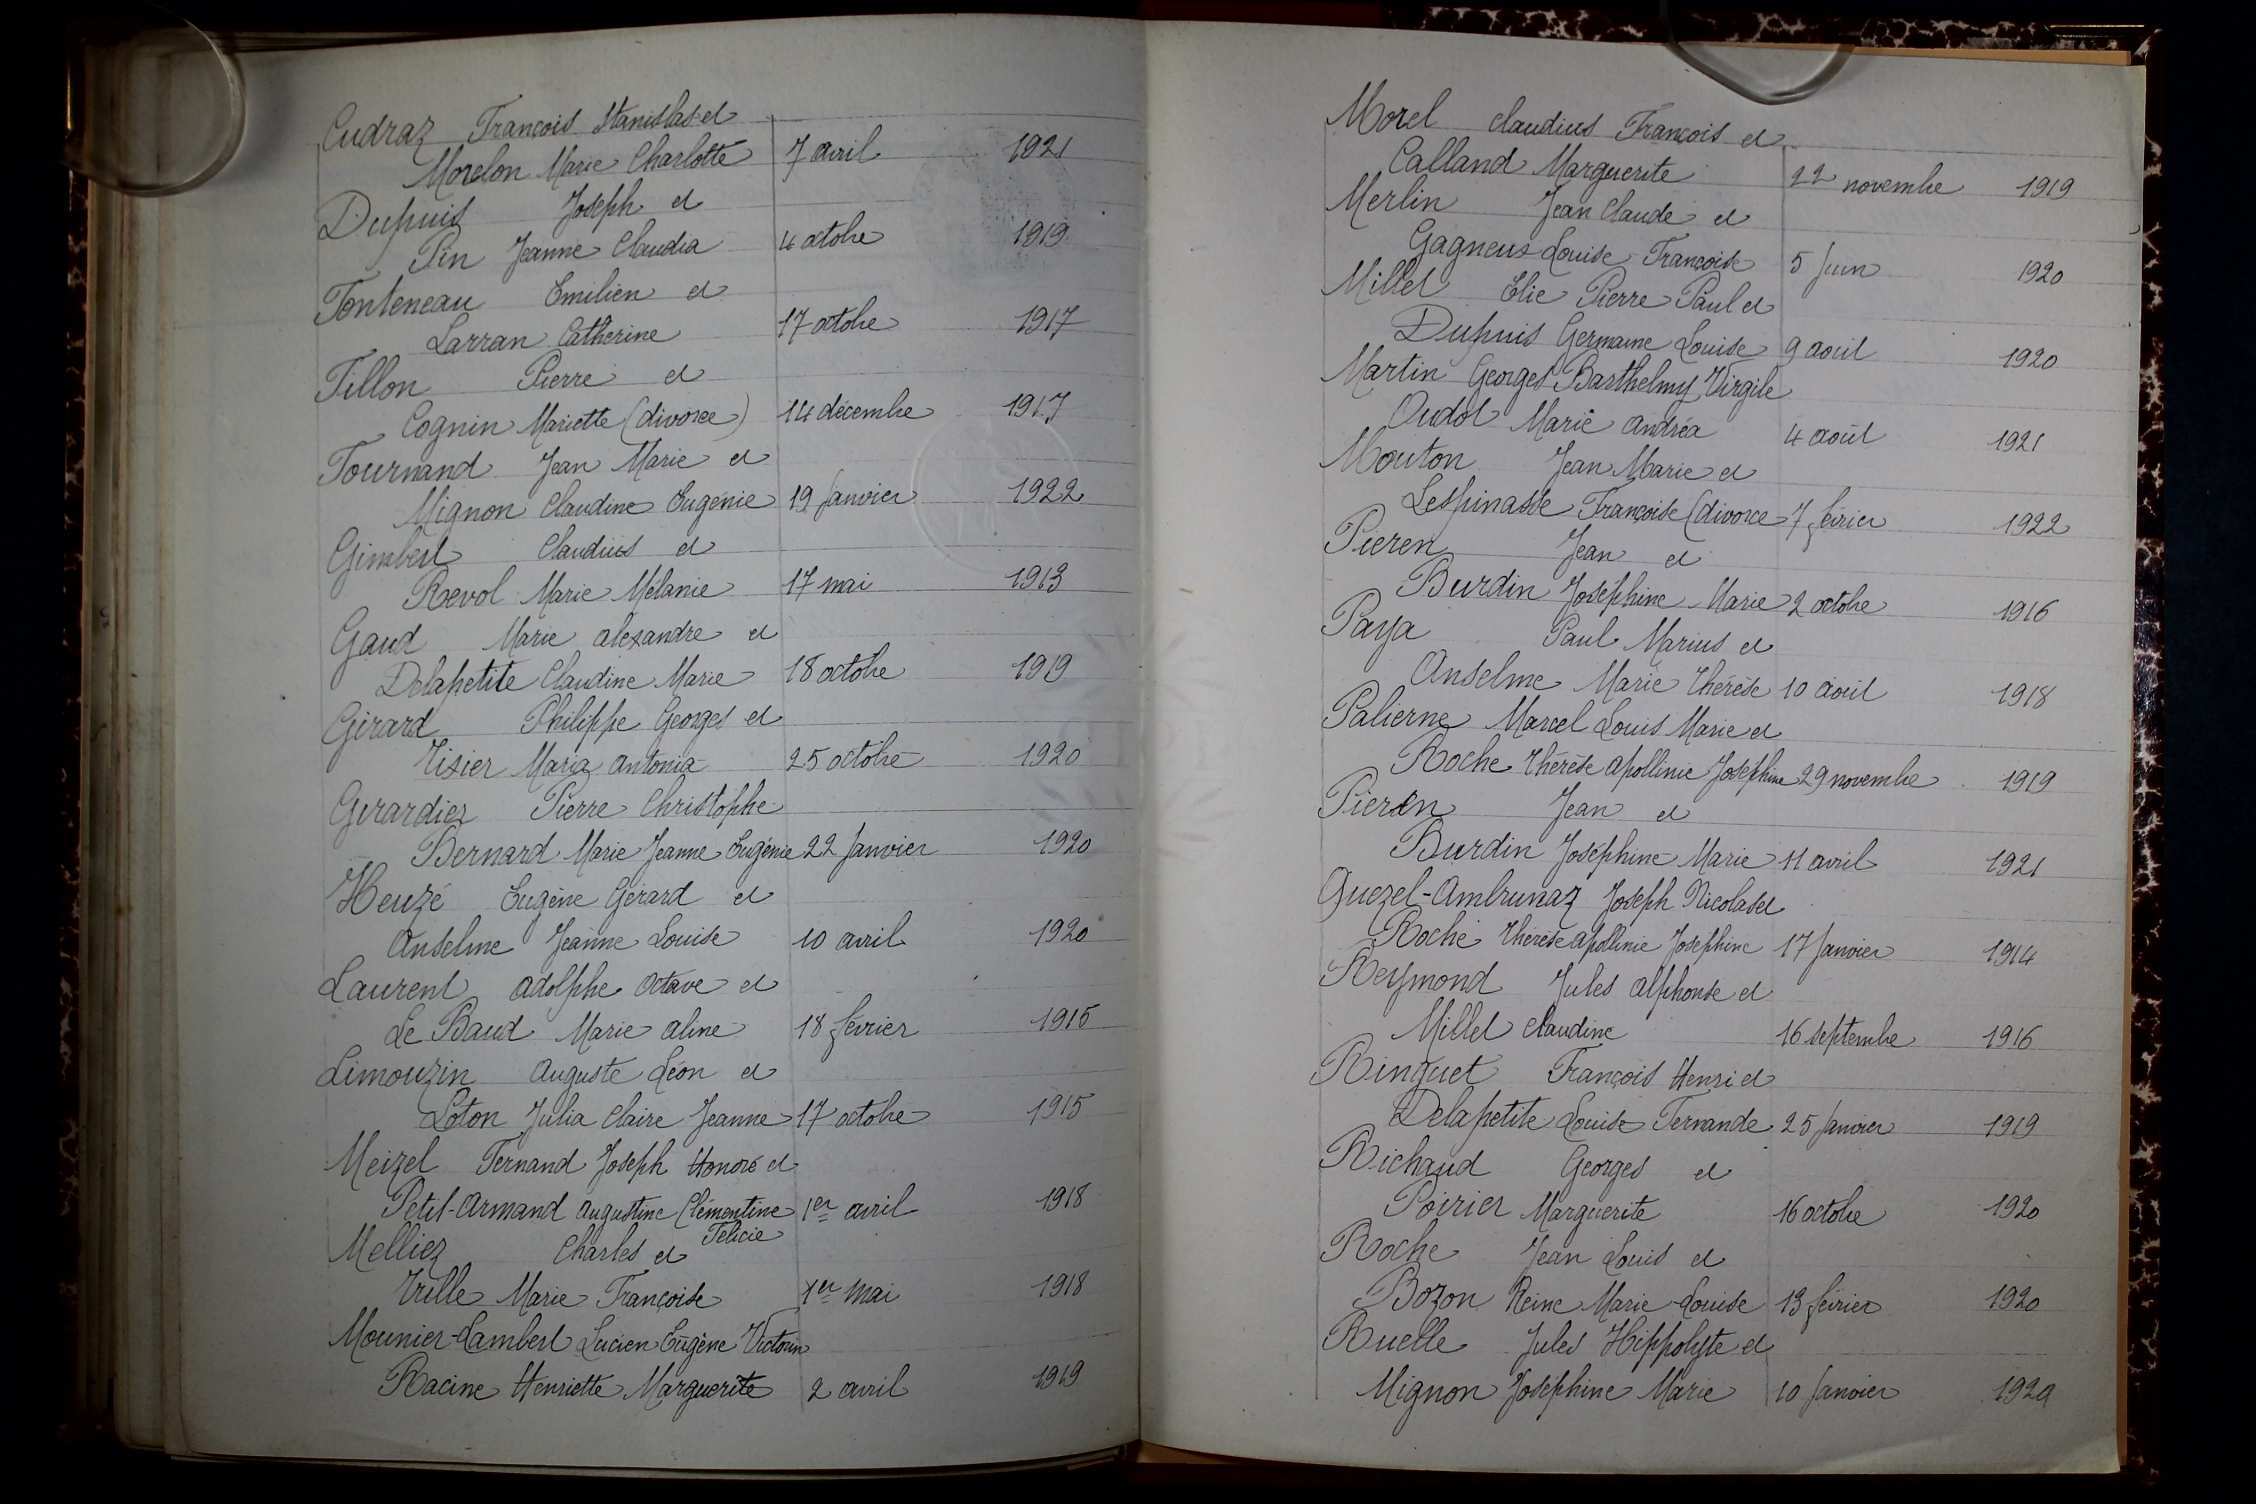 Cudraz François Stanislas et
Morelon Marie Charlotte 7 avril 1921
Dupuis Joseph et
Pin Jeanne Claudia 4 octobre 1919
Fonteneau Emilien et
Larran Catherine 17 octobre 1917
Fillon Pierre et
Cognin Mariette (divorce) 14 décembre 1917
Fournand Jean Marie et
Mignon Claudine Eugénie 19 Janvier 1922
Gimbert Claudius et
Revol Marie Mélanie 17 mai 1913
Gaud Marie Alexandre et
Delapetite Claudine Marie 18 octobre 1919
Girard Philippe Georges et
Tisier Maria Antonia 25 octobre 1920
Girardier Pierre Christophe
Bernard Marie Jeanne Eugénie 22 Janvier 1920
Heuzé Eugène Gérard et
Anselme Jeanne Louise 10 avril 1920
Laurent Adolphe Octave et
Le Baud Marie Aline 18 février 1915
Limouzin Auguste Léon et
Loton Julia Claire Jeanne 17 octobre 1915
Meizel Fernand Joseph Honoré et
Petit-Armand Augustine Clémentine 1er avril 1918
Félicie
Melliez Charles et
Trille Marie Françoise 1er Mai 1918
Mounier-Lambert Lucien Eugène Victorin
Racine Henriette Marguerite 2 avril 1919
Morel Claudius François et
Calland Marguerite 22 novembre 1919
Merlin Jean Claude et
Gagneux Louise Françoise 5 Juin 1920
Millet Elie Pierre Paul et
Dupuis Germaine Louise 9 août 1920
Martin Georges Barthelmy Virgile
Oudot Marie Andréa 4 août 1921
Mouton Jean Marie et
Lespinasse Françoise (divorce 7 février 1922
Pieren Jean et
Burdin Joséphine Marie 2 octobre 1916
Paya Paul Marius et
Anselme Marie Thérèse 10 août 1918
Palierne Marcel Louis Marie et
Roche Thérèse Apollinie Joséphine 29 novembre 1919
Pieren Jean et
Burdin Joséphine Marie 11 avril 1921
Quezel-Ambrunaz Joseph Nicolas et
Roche Thérèse Apollinie Joséphine 17 Janvier 1914
Reymond Jules Alphonse et
Millet Claudine 16 septembre 1916
Rinquet François Henri et
Delapetite Louise Fernande 25 Janvier 1919
Richaud Georges et
Poirier Marguerite 16 octobre 1920
Roche Jean Louis et
Bozon Reine Marie Louise 13 février 1920
Ruelle Jules Hippolyte et
Mignon Joséphine Marie 10 Janvier